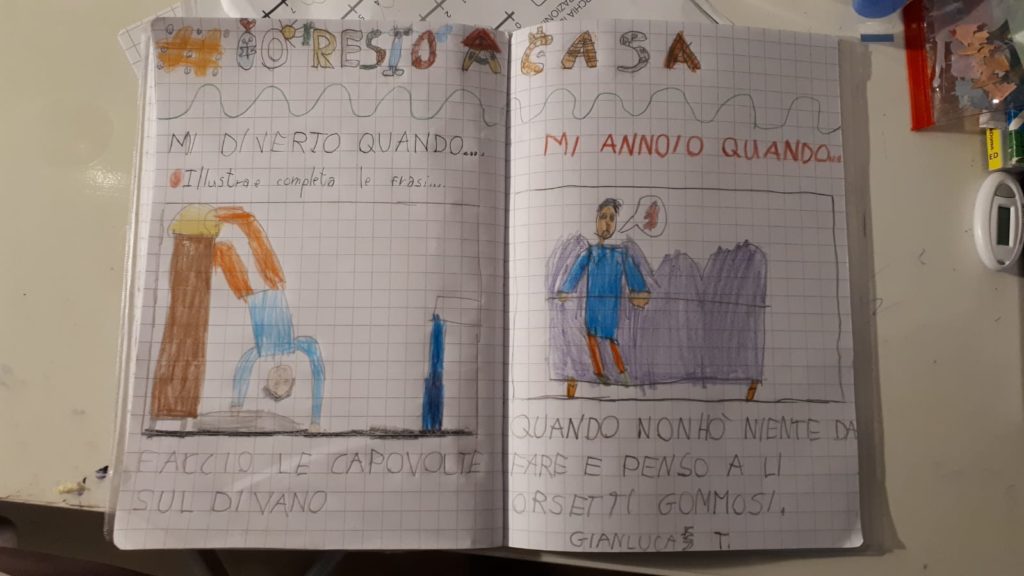 # IO RESTO A CASA
MI DIVERTO QUANDO....
Illustra e completa le frasi....
FACCIO LE CAPOVOLTE
SUL DIVANO
MI ANNOIO QUANDO...
QUANDO NON HÒ NIENTE DA
FARE E PENSO A LI
ORSETTI GOMMOSI.
GIANLUCA T.